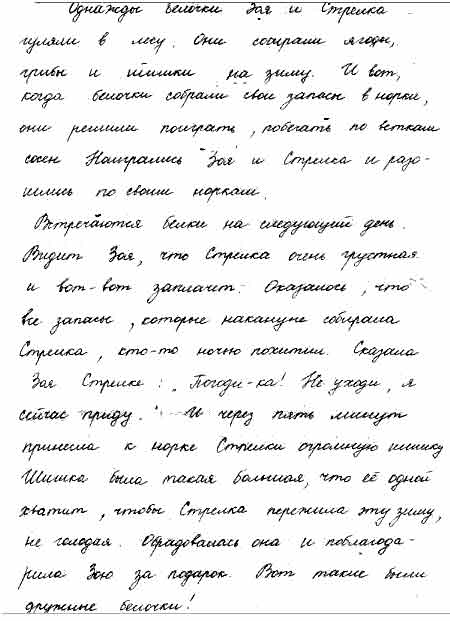 Однажды белочки Зоя и Стрелка
гуляли в лесу. Они собирали ягоды,
грибы и шишки на зиму. И вот,
когда белочки собрали свои запасы в норки,
они решили поиграть, побегать по веткам
сосен Наигрались Зоя и Стрелка и разо-
шлись по своим норкам.
Встречаются белки на следующий день.
Видит Зоя, что Стрелка очень грустная
и вот-вот заплачет. Оказалось, что
все запасы, которые накануне собирала
Стрелка, кто-то ночью похитил. Сказала
Зоя Стрелке: „Погоди-ка! Не уходи, я
сейчас приду." И через пять минут
принесла к норке Стрелки огромную шишку
Шишка была такая большая, что её одной
хватит, чтобы Стрелка пережила эту зиму,
не голодая. Обрадовалась она и поблагода-
рила Зою за подарок. Вот такие были
дружные белочки!